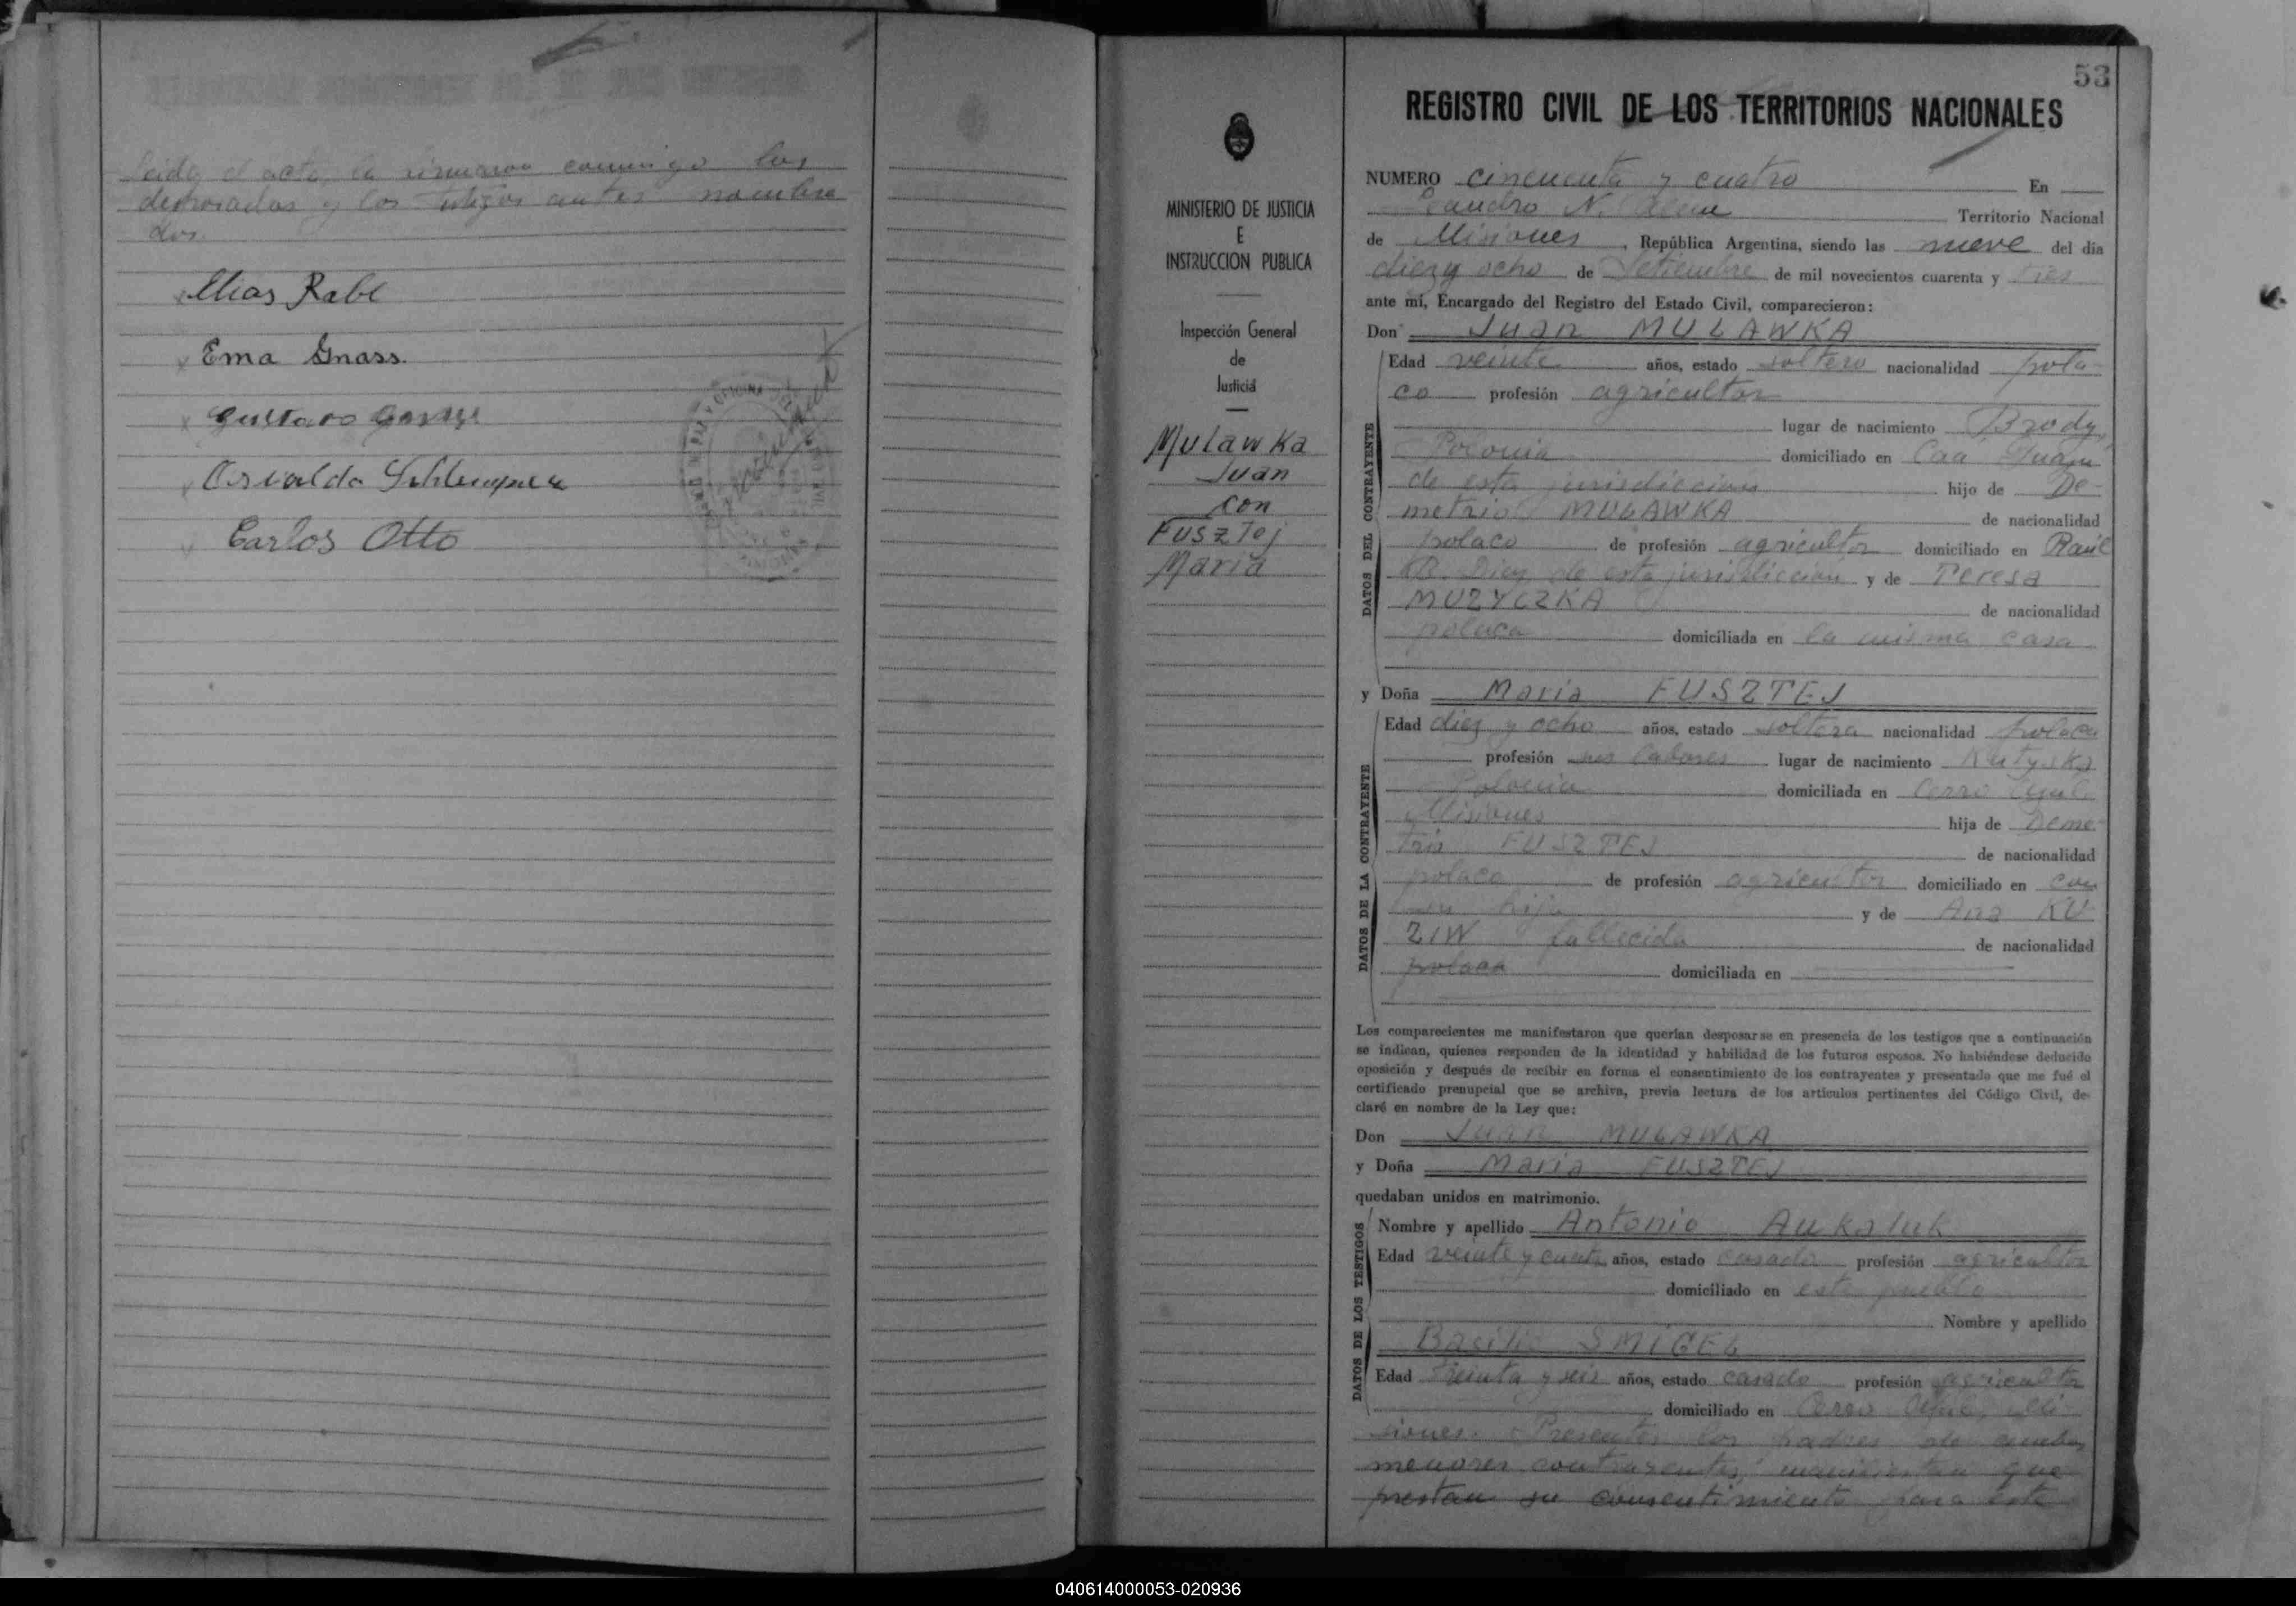 Leida el acta, la firmaron conmigo los
desposados y los testigos antes nombra
dos.
Elias Rabe
Ema Gnass.
Gustavo
Osvaldo
Carlos Otto
53
REGISTRO CIVIL DE LOS TERRITORIOS NACIONALES
MINISTERIO DE JUSTICIA
E
INSTRUCCION PUBLICA
Inspección General
de
Justicia
Mulawka
Juan
con
Fusztej
Maria
NUMERO cincuenta y cuatro En
Leandro N. Alem Territorio Nacional
de Misiones, República Argentina, siendo las nueve del día
diez y ocho de Setiembre de mil novecientos cuarenta y tres
ante mí, Encargado del Registro del Estado Civil, comparecieron:
Don Juan MULAWKA
DATOS DEL CONTRAYENTE
Edad veinte años, estado soltero nacionalidad pola-
co profesión agricultor
lugar de nacimiento Brody,
Polonia domiciliado en Caá Guazú
de esta jurisdicción hijo de De-
metrio MULAWKA de nacionalidad
polaco de profesión agricultor domiciliado en Raúl
B. Diaz de esta jurisdicción y de Teresa
MUZYCZKA de nacionalidad
polaca domiciliada en la misma casa
y Doña Maria FUSZTEJ
DATOS DE LA CONTRAYENTE
Edad diez y ocho años, estado soltera nacionalidad polaca
profesión sus labores lugar de nacimiento
Polonia domiciliada en Cerro Azul
Misiones hija de Deme-
trio FUSZTEJ de nacionalidad
polaco de profesión agricultor domiciliado en con
su hija y de Ana KU-
ZIW fallecida de nacionalidad
polaca domiciliada en
Los comparecientes me manifestaron que querían desposarse en presencia de los testigos que a continuación
se indican, quienes responden de la identidad y habilidad de los futuros esposos. No habiéndose deducido
oposición y después de recibir en forma el consentimiento de los contrayentes y presentado que me fué el
certificado prenupcial que se archiva, previa lectura de los artículos pertinentes del Código Civil, de-
claré en nombre de la Ley que:
Don Juan MULAWKA
y Doña Maria FUSZTEJ
quedaban unidos en matrimonio.
DATOS DE LOS TESTIGOS
Nombre y apellido Antonio Aukaluk
Edad veinte y cuatro años, estado casado profesión agricultor
domiciliado en este pueblo
Nombre y apellido
Basilio SMIGEL
Edad treinta y seis años, estado casado profesión agricultor
domiciliado en Cerro Azul, Mi-
siones. Presentes los padres de ambos
menores contrayentes, manifiestan que
prestan su consentimiento para este
040614000053-020936